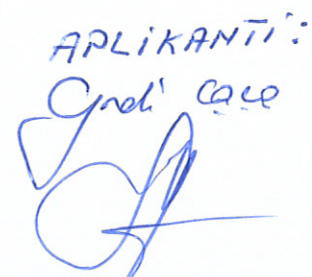 APLIKANTI:
Gredi Cace